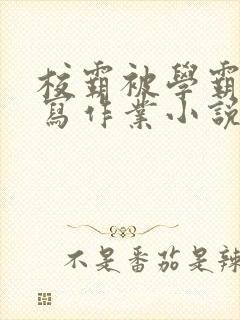 校霸被學霸
寫作業小說
不是番茄是辣